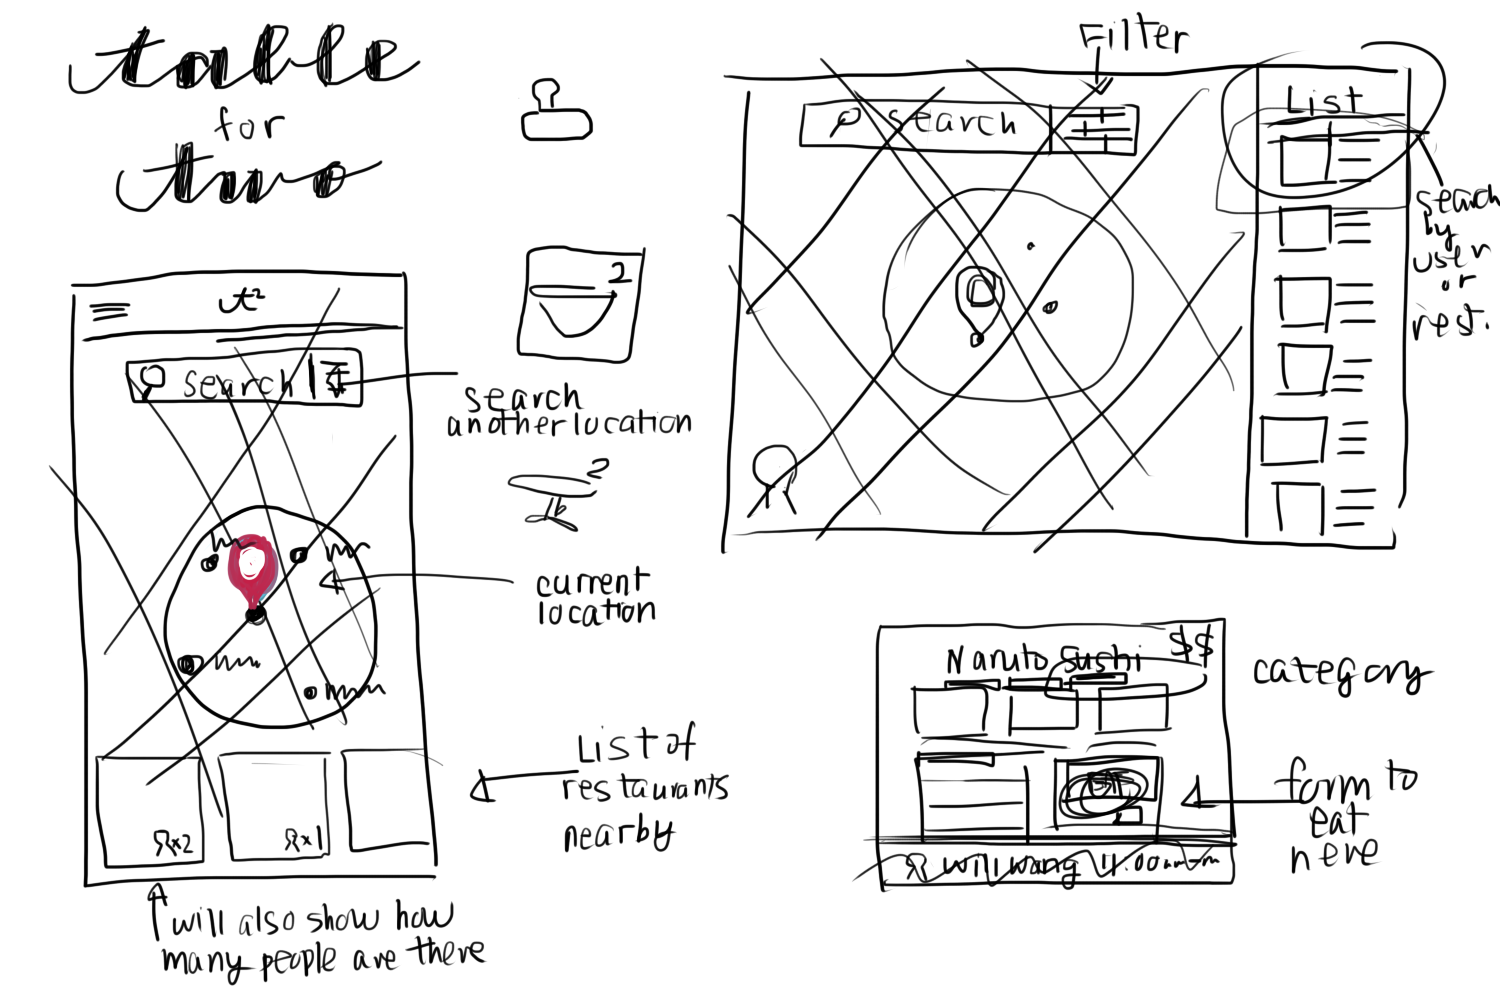 table
for
two
t²
search
search
another location
2
2
current
location
x2
x1
List of
restaurants
nearby
will also show how
many people are there
Filter
search
List
search
by
user
or
rest.
Naruto Sushi
$$
category
form to
eat
here
will wang